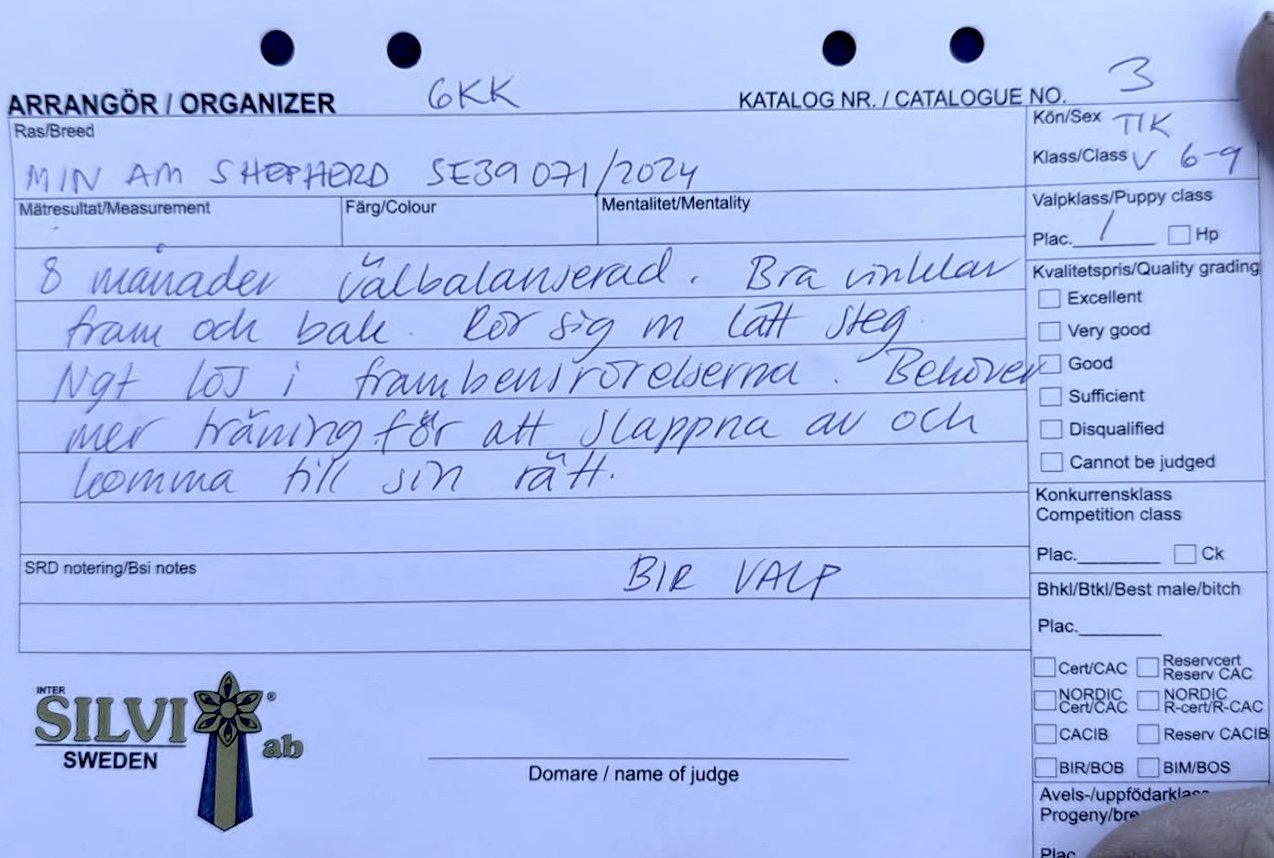 ARRANGÖR / ORGANIZER GKK KATALOG NR. / CATALOGUE NO. 3
Ras/Breed
MIN AM SHEPHERD SE39071/2024
Kön/Sex TIK
Klass/Class V 6-9
Mätresultat/Measurement Färg/Colour Mentalitet/Mentality
Valpklass/Puppy class
Plac. 1 Hp
8 månader välbalanserad. Bra vinklar
fram och bak. Rör sig m lätt steg.
Ngt lös i frambensrörelserna. Behöver
mer träning för att slappna av och
komma till sin rätt.
Kvalitetspris/Quality grading
Excellent
Very good
Good
Sufficient
Disqualified
Cannot be judged
Konkurrensklass
Competition class
Plac. Ck
SRD notering/Bsi notes BIR VALP
Bhkl/Btkl/Best male/bitch
Plac.
Cert/CAC Reservcert
Reserv CAC
NORDIC Cert/CAC NORDIC
R-cert/R-CAC
CACIB Reserv CACIB
BIR/BOB BIM/BOS
Avels-/uppfödarklass
Progeny/bre
Plac
INTER
SILVI ® ab
SWEDEN
Domare / name of judge